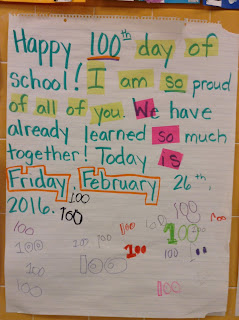 Happy 100th day of
school! I am so proud
of all of you. We have
already learned so much
together! Today is
Friday, February 26th,
2016. 100
100
100 100 100
100 100 100 100 100
100 100 100 100
100 100
100 100